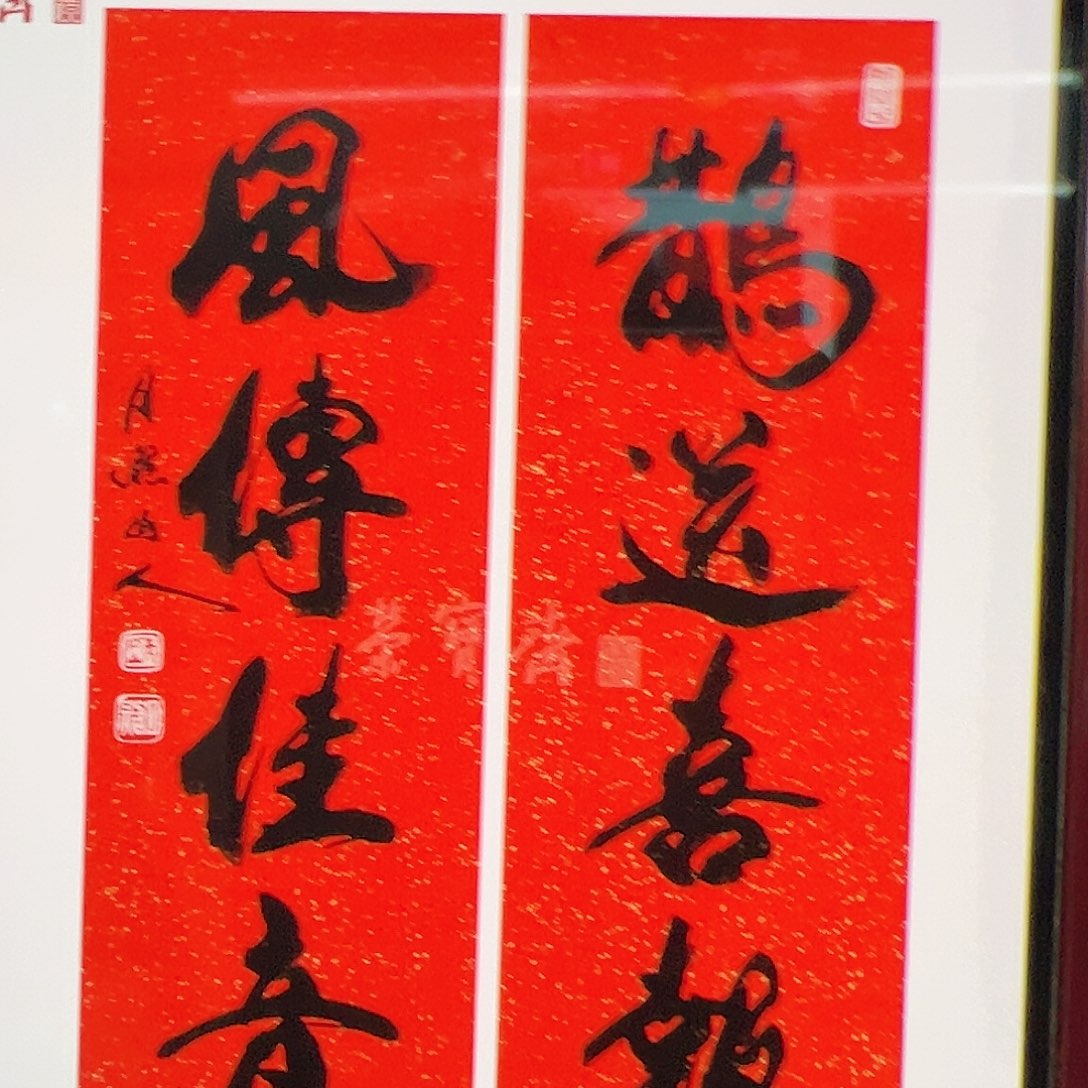 鵲送喜報
風傳佳音
月照山人
榮寳齋